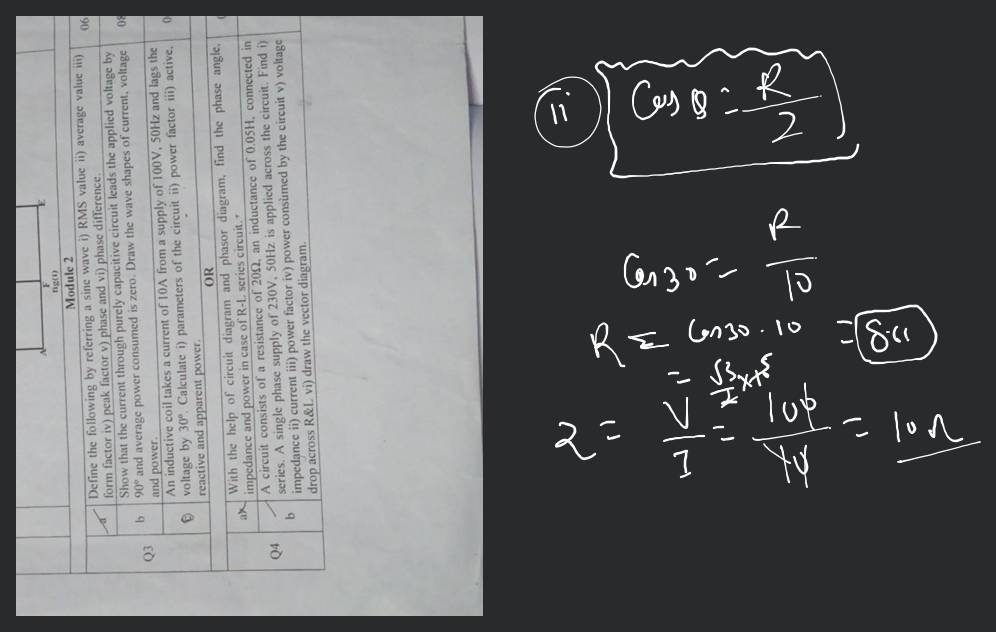 A F E
fig(i)
Module 2
Q3 a Define the following by referring a sine wave i) RMS value ii) average value iii) 06
form factor iv) peak factor v) phase and vi) phase difference.
b Show that the current through purely capacitive circuit leads the applied voltage by 08
90° and average power consumed is zero. Draw the wave shapes of current, voltage
and power.
c An inductive coil takes a current of 10A from a supply of 100V, 50Hz and lags the 0
voltage by 30°. Calculate i) parameters of the circuit ii) power factor iii) active,
reactive and apparent power.
OR
Q4 a With the help of circuit diagram and phasor diagram, find the phase angle,
impedance and power in case of R-L series circuit.
b A circuit consists of a resistance of 20Ω, an inductance of 0.05H, connected in
series. A single phase supply of 230V, 50Hz is applied across the circuit. Find i)
impedance ii) current iii) power factor iv) power consumed by the circuit v) voltage
drop across R&L vi) draw the vector diagram.
ii Cos θ = R/2
Cos 30 = R/10
R = Cos 30 · 10 = 8.66
= √3/2 × 10 5
2 = V/I = 100/10 = 10 Ω